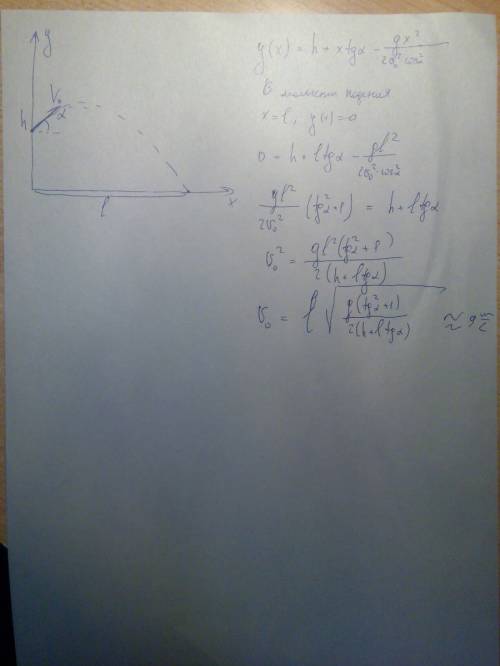 y
V₀
α
h
l
x
y(x) = h + x tgα - gx² / 2v₀² cos²α
В момент падения
x = l, y(x) = 0
0 = h + l tgα - gl² / 2v₀² cos²α
gl² / 2v₀² (tg²α + 1) = h + l tgα
v₀² = gl² (tg²α + 1) / 2(h + l tgα)
v₀ = l √ g(tg²α + 1) / 2(h + l tgα) ≈ 9 м/с